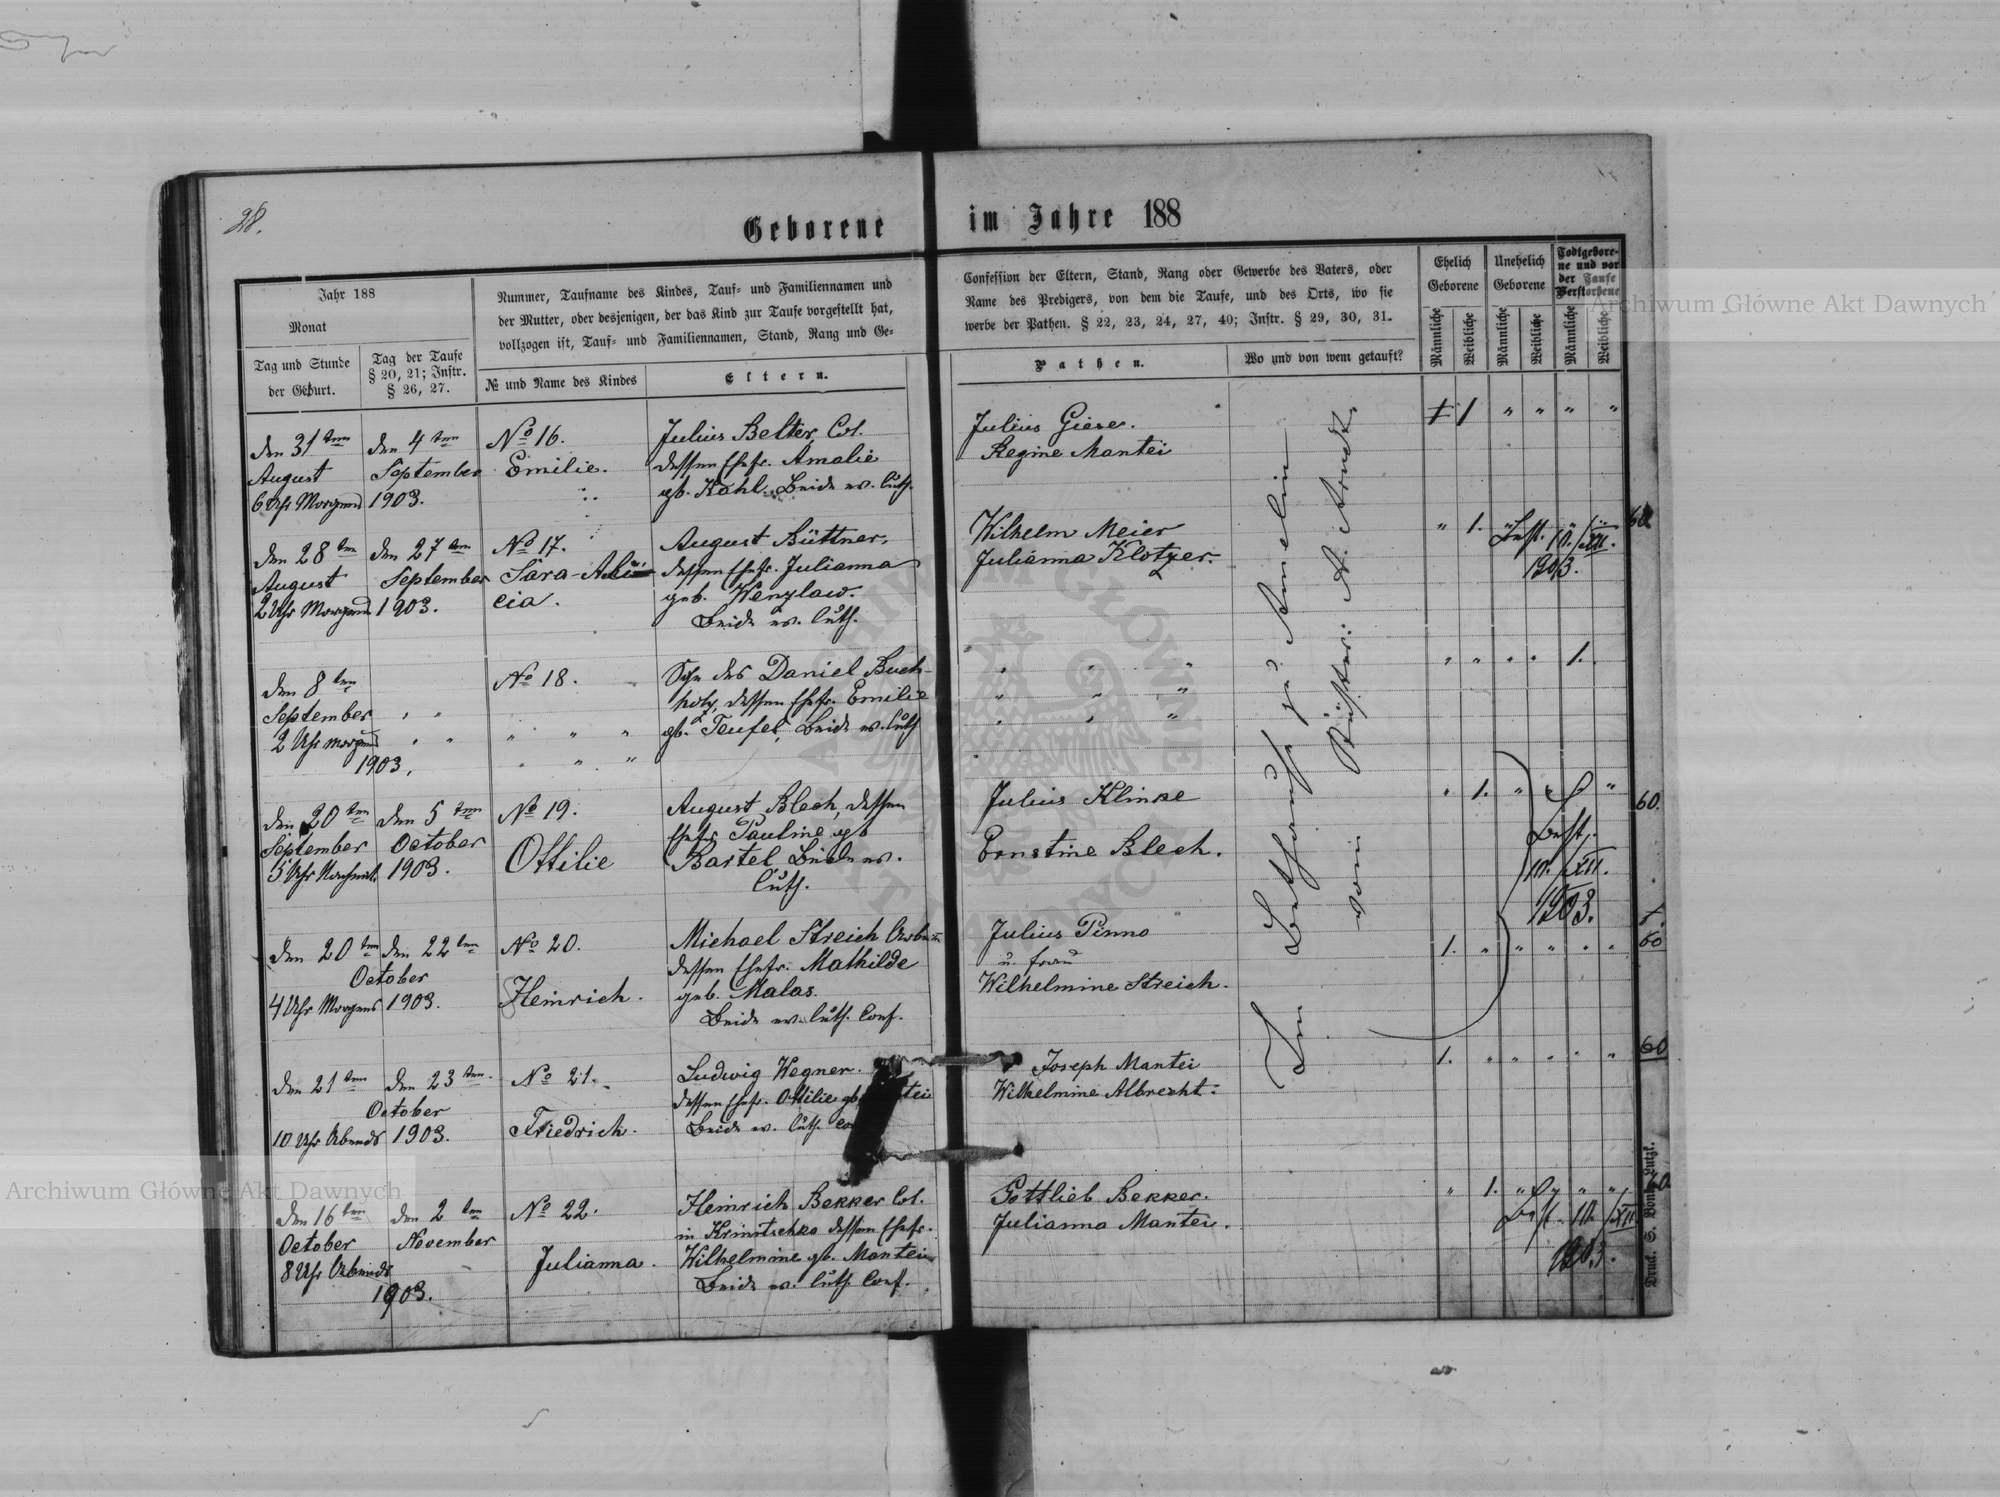 28.
Geborene im Jahre 188
Jahr 188
Monat
Tag und Stunde
der Geburt.
Tag der Taufe
§ 20, 21; Instr.
§ 26, 27.
Nummer, Taufname des Kindes, Tauf- und Familiennamen und
der Mutter, oder desjenigen, der das Kind zur Taufe vorgestellt hat,
vollzogen ist, Tauf- und Familiennamen, Stand, Rang und Ge-
№ und Name des Kindes
Eltern.
Confession der Eltern, Stand, Rang oder Gewerbe des Vaters, oder
Name des Predigers, von dem die Taufe, und des Orts, wo sie
werbe der Pathen. § 22, 23, 24, 27, 40; Instr. § 29, 30, 31.
Pathen.
Wo und von wem getauft?
Ehelich
Geborene
Unehelich
Geborene
Todtgebore-
ne und vor
der Taufe
Verstorbene
Männliche
Weibliche
Männliche
Weibliche
Männliche
Weibliche
den 31 ten
August
6 Uhr Morgens
den 4 ten
September
1903.
No 16.
Emilie.
Julius Belter, Col.
dessen Ehefr. Amalie
gb. Kahl. Beide ev. luth.
Julius Giese.
Regine Mantei
1 " " " "
den 28 ten
August
2 Uhr Morgens
den 27 ten
September
1903.
No 17.
Sara-Ali
cia.
August Büttner,
dessen Ehefr. Julianna
geb. Wenzlaw.
Beide ev. luth.
Wilhelm Meier
Julianna Klotzer.
" 1. "
Best. 10./XII.
1903.
60
den 8 ten
September
2 Uhr morgens
1903.
No 18.
Sohn des Daniel Buch-
holz, dessen Ehefr. Emilie
gb. Teufel, Beide ev. luth
" " " " 1.
den 20 ten
September
5 Uhr Nachmit.
den 5 ten
October
1903.
No 19.
Ottilie
August Blech, dessen
Ehefr. Pauline gb
Bartel Beide ev.
luth.
Julius Klinke
Ernstine Blech.
" 1. " "
Best.
10./XII.
1903.
60.
den 20 ten den 22 ten
October
4 Uhr Morgens 1903.
No 20.
Heinrich.
Michael Streich
dessen Ehefr. Mathilde
geb. Malas.
Beide ev. luth. Conf.
Julius Pinno
u. Frau
Wilhelmine Streich.
1. " " " " "
60
den 21 ten den 23 ten
October
10 Uhr Abends 1903.
No 21.
Friedrich.
Ludwig Wegner.
dessen Ehefr. Ottilie gb tei
Beide ev. luth. Co
Joseph Mantei
Wilhelmine Albrecht.
1. " " " " "
60
den 16 ten
October
8 Uhr Abends
1903.
den 2 ten
November
No 22.
Julianna.
Heinrich Bekker Col.
in dessen Ehefr.
Wilhelmine gb. Mantei
Beide ev. luth. Conf.
Gottlieb Bekker.
Julianna Mantei.
" 1. " " "
Best. 10./XII
1903.
Im Bethause zu Amelin
vom Küster: A. Arndt.
Archiwum Główne Akt Dawnych
Archiwum Główne Akt Dawnych